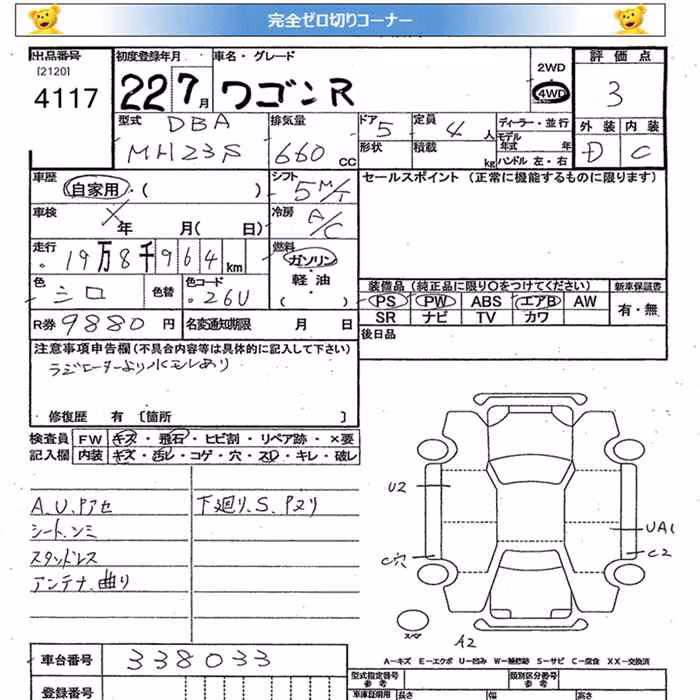 完全ゼロ切りコーナー
出品番号 初度登録年月 車名・グレード 2WD 評価点
[2120]
4117 22 7月 ワゴンR 4WD 3
型式 DBA 排気量 ドア 5 定員 4人 ディーラー・並行 外装 内装
MH23S 660cc 形状 積載 kg モデル年式 年 D C
ハンドル 左・右
車歴 自家用・( ) シフト 5M/T セールスポイント (正常に機能するものに限ります)
車検 年 月( 日) 冷房 A/C
走行 19万8千964km 燃料 ガソリン・
軽油
( )
色 シロ 色替 色コード 26U 装備品 (純正品に限り○をつけてください) 新車保証書
PS PW ABS エアB AW 有・無
R券 9880円 名変通知期限 月 日 SR ナビ TV カワ
後日品
注意事項申告欄 (不具合内容等は具体的に記入して下さい)
ラジエーターより水モレあり
修復歴 有 [箇所 ]
検査員 FW キズ・飛石・ヒビ割・リペア跡・×要
記入欄 内装 キズ・汚レ・コゲ・穴・スレ・キレ・破レ
U2
A.U.Pアセ 下廻り.S.Pヌリ
シート.シミ UA1
スタッドレス C穴 C2
アンテナ.曲り
A2
A-キズ E-エクボ U-凹み W-補修跡 S-サビ C-腐食 XX-交換済
車台番号 338033
型式指定番号 類別区分番号
参考 参考
登録番号 車庫証明用 長さ 幅 高さ